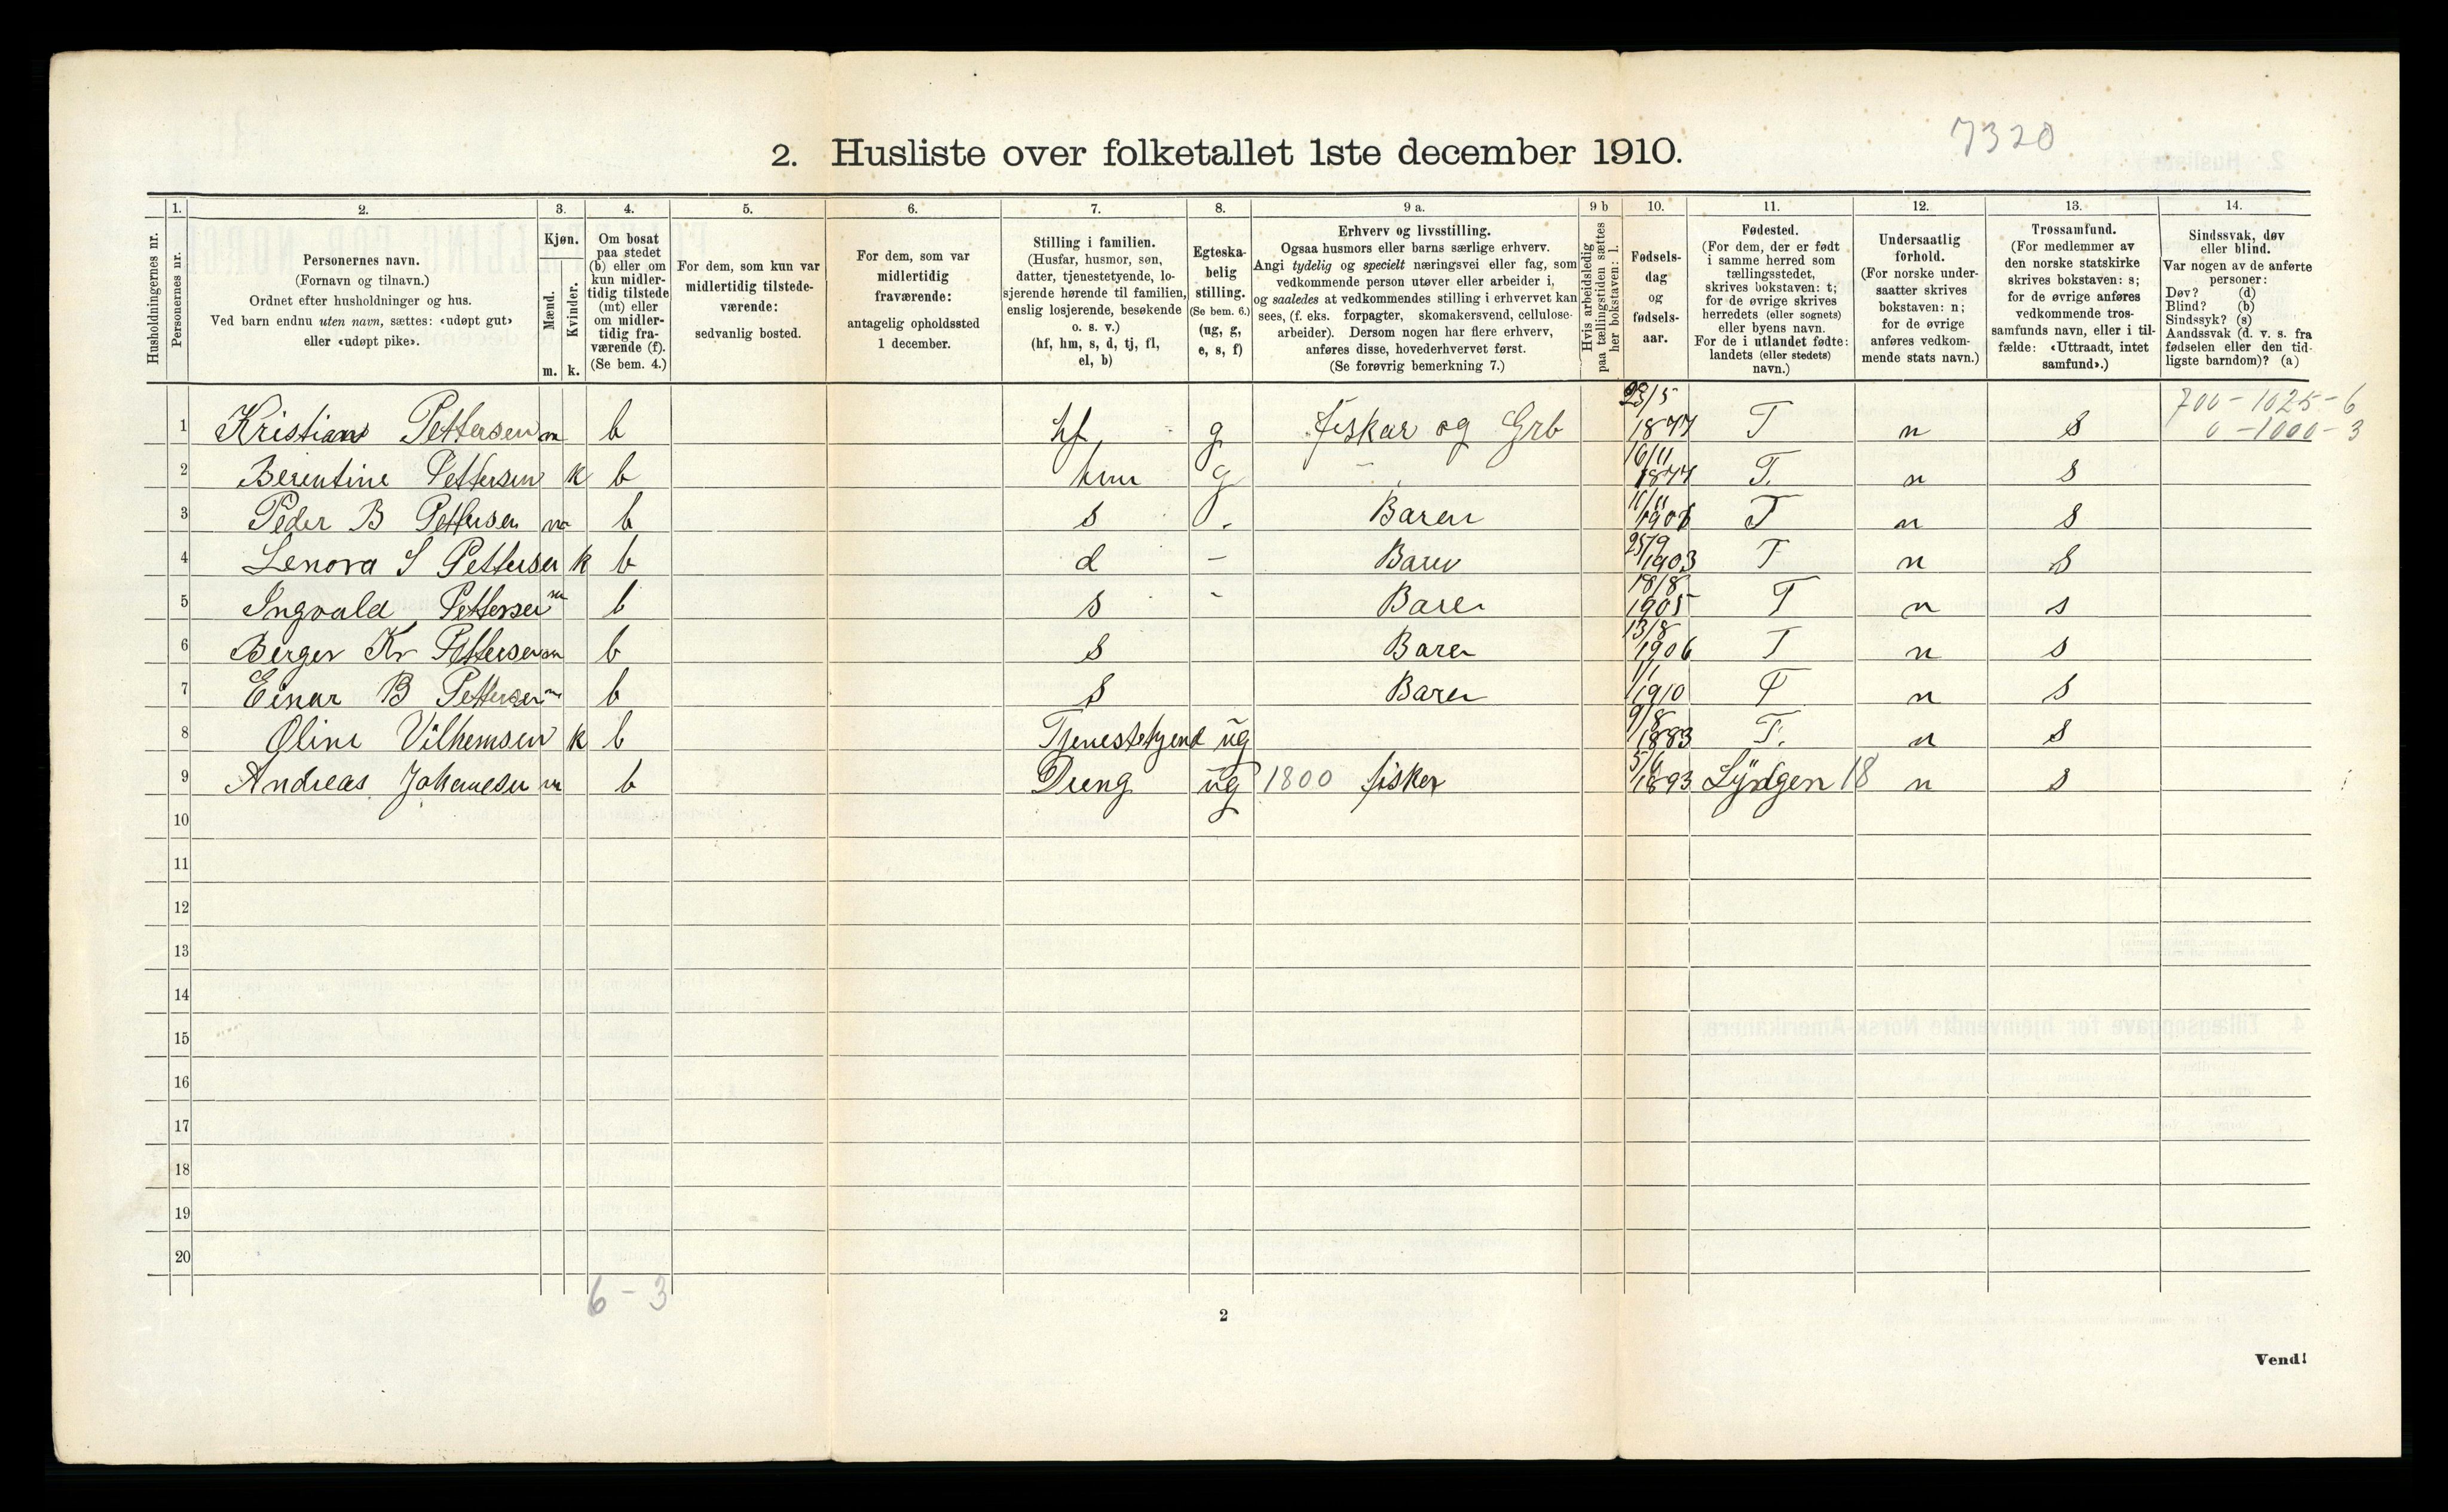 7320
2. Husliste over folketallet 1ste december 1910.
Husholdningernes nr.
1. Personernes nr.
2. Personernes navn.
(Fornavn og tilnavn.)
Ordnet efter husholdninger og hus.
Ved barn endnu uten navn, sættes: «udøpt gut»
eller «udøpt pike».
3. Kjøn.
Mænd. m.
Kvinder. k.
4. Om bosat
paa stedet
(b) eller om
kun midler-
tidig tilstede
(mt) eller
om midler-
tidig fra-
værende (f).
(Se bem. 4.)
5. For dem, som kun var
midlertidig tilstede-
værende:
sedvanlig bosted.
6. For dem, som var
midlertidig
fraværende:
antagelig opholdssted
1 december.
7. Stilling i familien.
(Husfar, husmor, søn,
datter, tjenestetyende, lo-
sjerende hørende til familien,
enslig losjerende, besøkende
o. s. v.)
(hf, hm, s, d, tj, fl,
el, b)
8. Egteska-
belig
stilling.
(Se bem. 6.)
(ug, g,
e, s, f)
9 a. Erhverv og livsstilling.
Ogsaa husmors eller barns særlige erhverv.
Angi tydelig og specielt næringsvei eller fag, som
vedkommende person utøver eller arbeider i,
og saaledes at vedkommendes stilling i erhvervet kan
sees, (f. eks. forpagter, skomakersvend, cellulose-
arbeider). Dersom nogen har flere erhverv,
anføres disse, hovederhvervet først.
(Se forøvrig bemerkning 7.)
9 b Hvis arbeidsledig
paa tællingstiden sættes
her bokstaven: l.
10. Fødsels-
dag
og
fødsels-
aar.
11. Fødested.
(For dem, der er født
i samme herred som
tællingsstedet,
skrives bokstaven: t;
for de øvrige skrives
herredets (eller sognets)
eller byens navn.
For de i utlandet fødte:
landets (eller stedets)
navn.)
12. Undersaatlig
forhold.
(For norske under-
saatter skrives
bokstaven: n;
for de øvrige
anføres vedkom-
mende stats navn.)
13. Trossamfund.
(For medlemmer av
den norske statskirke
skrives bokstaven: s;
for de øvrige anføres
vedkommende tros-
samfunds navn, eller i til-
fælde: «Uttraadt, intet
samfund».)
14. Sindssvak, døv
eller blind.
Var nogen av de anførte
personer:
Døv? (d)
Blind? (b)
Sindssyk? (s)
Aandssvak (d. v. s. fra
fødselen eller den tid-
ligste barndom)? (a)
700 - 1025 - 6
0 - 1000 - 3
1 Kristian Pettersen m b hf g fiskar og Grb 23/5 1877 T n s
2 Berentine Pettersen k b hm g 16/11 1877 T. n s
3 Peder B Pettersen m b s Baren 11/11 T n s
4 Lenora S Pettersen k b d - Baren 25/9 1903 T n s
5 Ingvald Pettersen m b s - Baren 18/8 1905 T n s
6 Berger Kr Pettersen m b s Baren 13/8 1906 T n s
7 Einar B Pettersen m b s Baren 1/1 1910 T n s
8 Oline Vilhemsen k b Tjenestetyend ug 9/8 1883 T. n s
9 Andreas Johanesen m b Dreng ug 1800 fisker 5/6 1893 Lyngen 18 n s
10
11
12
13
14
15
16
17
18
19
20
6 - 3
2
Vend!